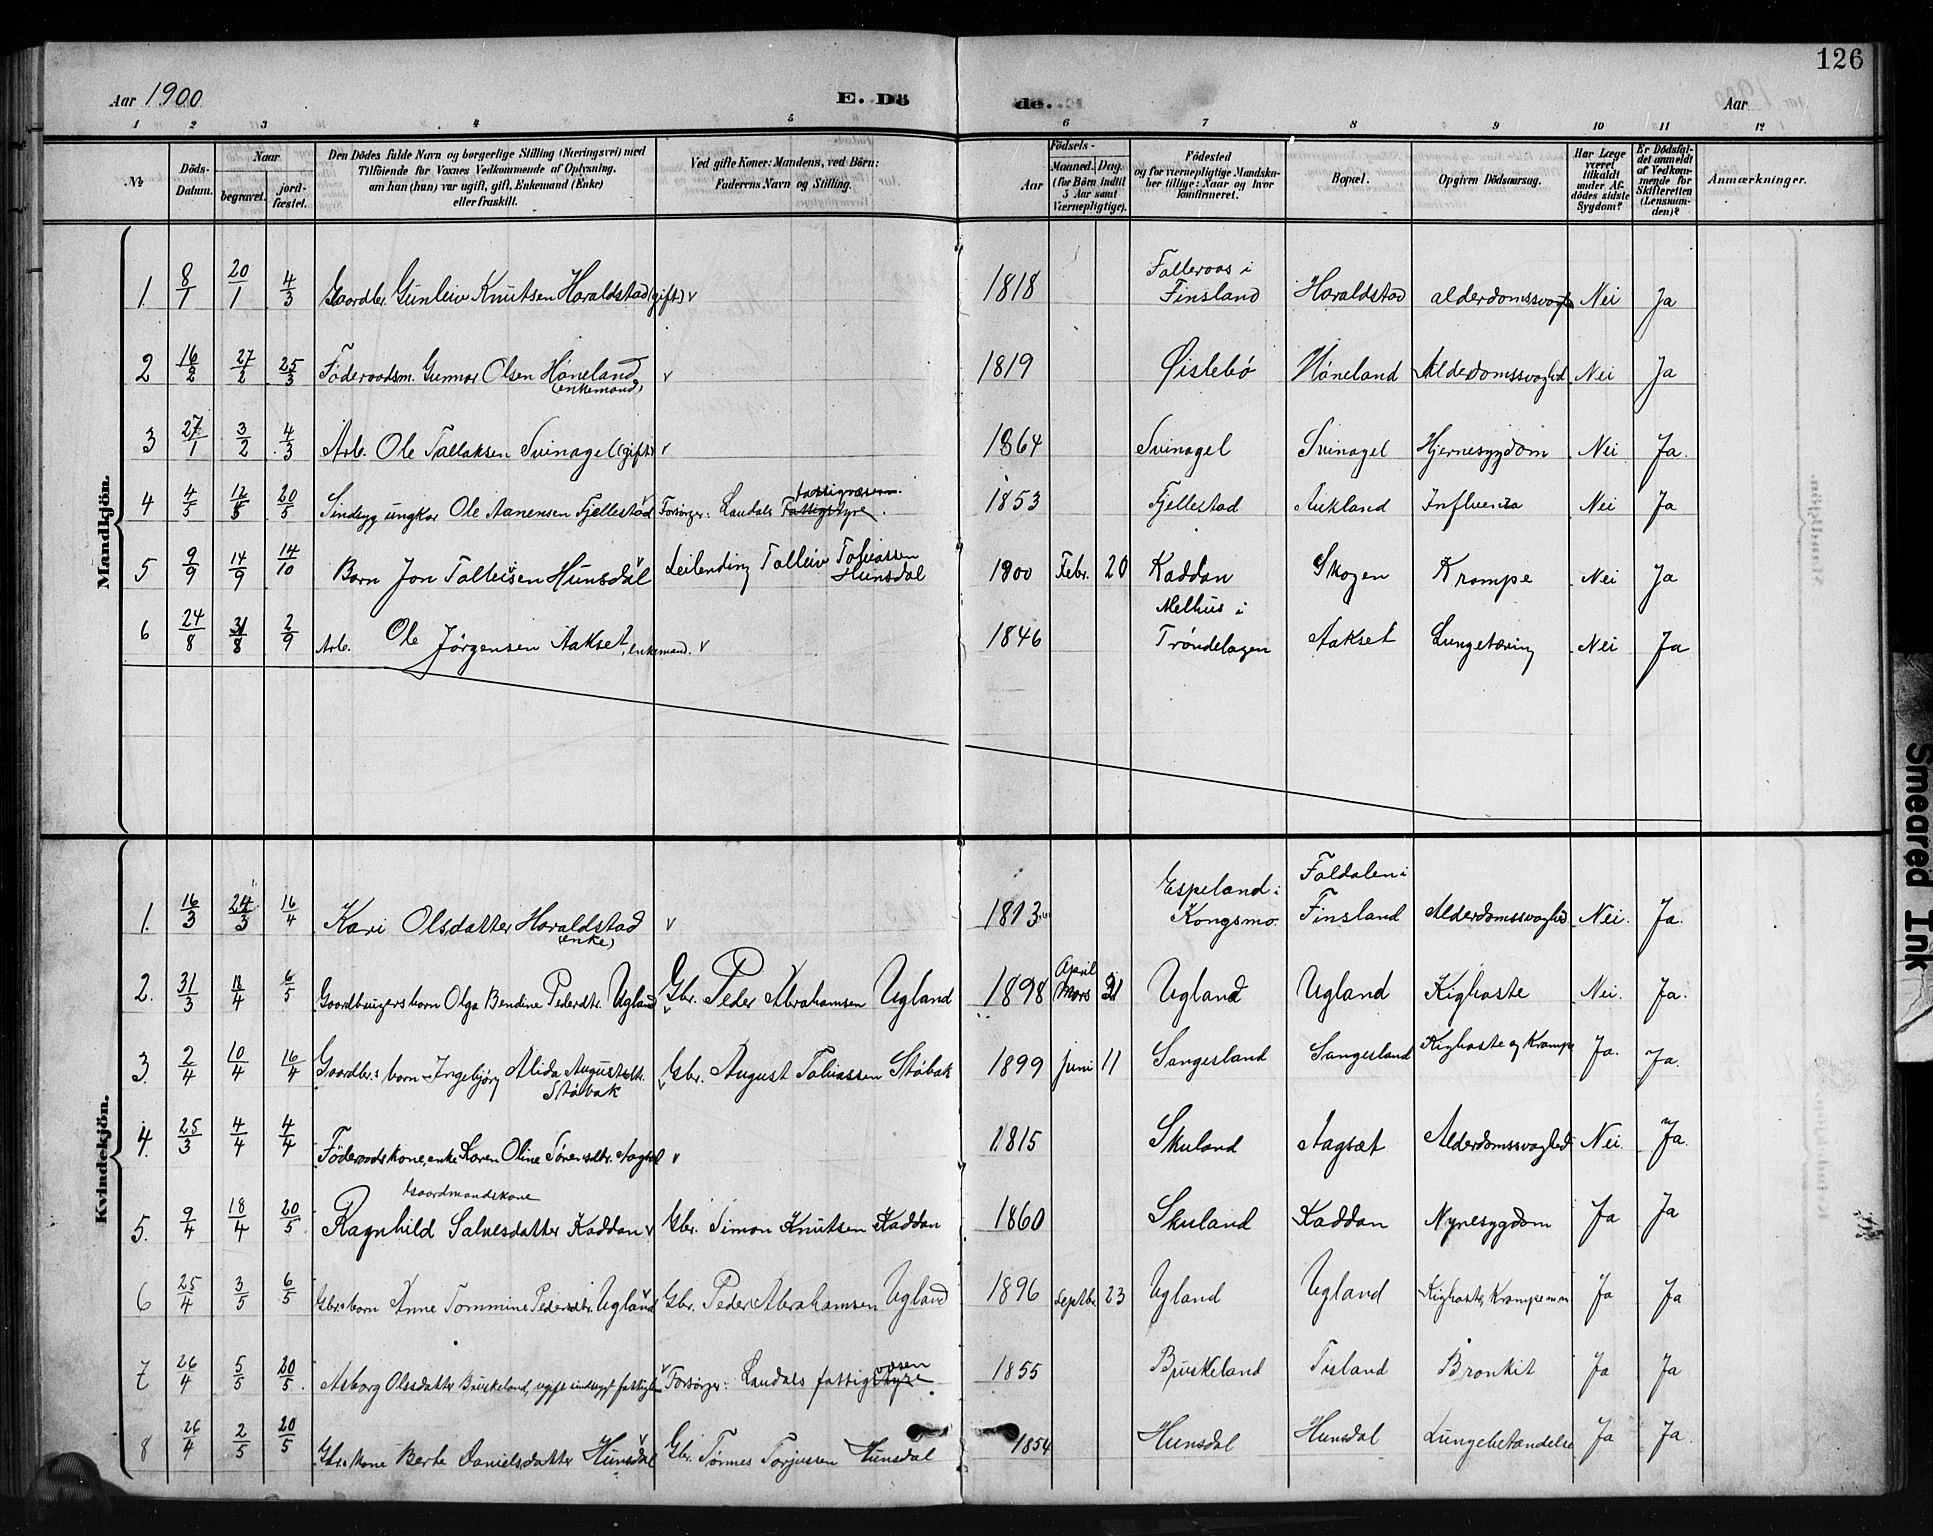 126
Aar 1900 E. Dö de. Aar
1 2 3 4 5 6 7 8 9 10 11 12
№ Döds-Datum. Naar begravet. jord-fæstet. Den Dödes fulde Navn og borgerlige Stilling (Næringsvei) med Tilföiende for Voxnes Vedkommende af Oplysning, om han (hun) var ugift, gift, Enkemand (Enke) eller fraskilt. Ved gifte Koner: Mandens, ved Börn: Faderens Navn og Stilling. Aar Födsels- Maaned. Dag. (for Börn indtil 5 Aar samt Værnepligtige). Födested og for værnepligtige Mandskaber tillige: Naar og hvor konfirmeret. Bopæl. Opgiven Dödsaarsag. Har Læge været tilkaldt under Afdödes sidste Sygdom? Er Dödsfaldet anmeldt af Vedkommende for Skifteretten (Lensmanden)? Anmærkninger.
Mandkjön.
1. 8/1 20/1 4/3 Gaardbr. Gunleiv Knutsen Haraldstad (gift) v 1818 Falleraas i Finsland Haraldstad alderdomssvagh Nei Ja
2 16/2 27/2 25/3 Föderaadsm. Gunnar Olsen Höneland (enkemand) v 1819 Øislebö Höneland Alderdomssvaghd Nei Ja
3 27/1 3/2 4/3 Arb. Ole Tallaksen Svinagel (gift) v 1864 Svinagel Svinagel Hjernesygdom Nei Ja.
4 4/5 12/5 20/5 Sindssyg ungkar Ole Aanensen Fjellestad v Forsörger: Laudals Fattigstyre fattigvæsen. 1853 Fjellestad Aukland Influenza Nei Ja
5 9/9 14/9 14/10 Barn Jon Talleivsen Hunsdal v Leilending Talleiv Tobiassen Hunsdal 1900 Febr. 20 Kaddan Skogen Krampe Nei Ja
6 24/8 31/8 2/9 Arb. Ole Jørgensen Aakset, enkemand. v 1846 Melhus i Trøndelagen Aakset Lungetæring Nei Ja
Kvindekjön.
1. 16/3 24/3 16/4 Kari Olsdatter Haraldstad (enke) v 1813 Espeland i Kongsmo. Faldalen i Finsland Alderdomssvaghed Nei. Ja.
2. 31/3 18/4 6/5 Gaardbrugers barn Olga Bendine Pedersdtr. Ugland v Gbr. Peder Abrahamsen Ugland 1898 April Mars 21 Ugland Ugland Kighoste Nei. Ja.
3. 2/4 10/4 16/4 Gaardbr.s barn Ingebjörg Alida Augustsdtr. Støbak v Gbr. August Tobiassen Støbak 1899 Juni 11 Sangesland Sangesland Kighoste og Krampe Ja. Ja.
4. 25/3 4/4 4/4 Föderaadskone, enke Karen Oline Sörensdtr. Aagsæt v 1815 Skuland Aagsæt Alderdomssvaghed Nei Ja.
5. 9/4 18/4 20/5 Gaardmandskone Ragnhild Salvesdatter Kaddan v Gbr. Simon Knutsen Kaddan 1860 Skuland Kaddan Nyresygdom Ja Ja
6 25/4 3/5 6/5 Gbr.s barn Anne Tommine Pedersdtr. Ugland v Gbr. Peder Abrahamsen Ugland 1896 Septbr. 23 Ugland Ugland Kighoste, Krampe m.m Ja Ja
7 26/4 5/5 20/5 Asborg Olsdatter Bruskeland, ugift sindssygt fattiglem v Forsörger: Laudals fattigstyre væsen. 1855 Bruskeland Tisland Bronkit Ja Ja
8 26/4 2/5 20/5 Gbr.s Kone Berte Danielsdatter Hunsdal v Gbr. Tønnes Torjussen Hunsdal 1854 Hunsdal Hunsdal Lungebetændelse Ja Ja.
Smeared Ink